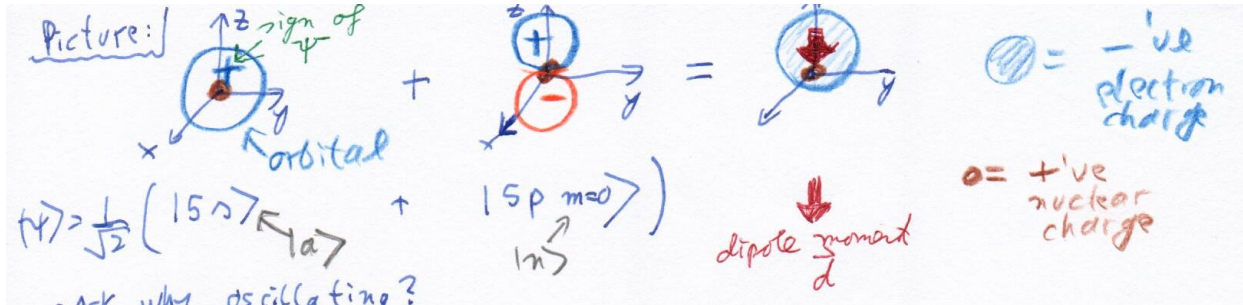 Picture:
z
sign of
ψ
+
y
x
orbital
+
z
+
-
y
x
=
y
= -'ve
electron
charge
o= +'ve
nuclear
charge
|ψ> = 1/√2 ( |5s> + |5p m=0> )
|a>
|n>
dipole moment
d
why oscillating?